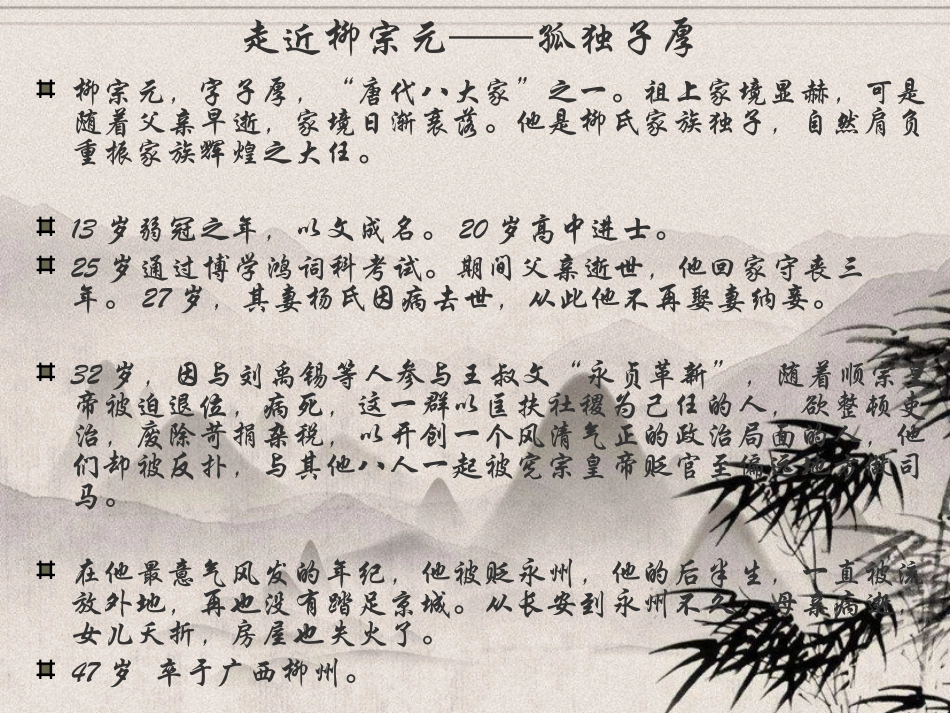 走近柳宗元——孤独子厚
柳宗元，字子厚，“唐代八大家”之一。祖上家境显赫，可是
随着父亲早逝，家境日渐衰落。他是柳氏家族独子，自然肩负
重振家族辉煌之大任。
13 岁弱冠之年，以文成名。20 岁高中进士。
25 岁通过博学鸿词科考试。期间父亲逝世，他回家守丧三
年。27 岁，其妻杨氏因病去世，从此他不再娶妻纳妾。
32 岁，因与刘禹锡等人参与王叔文“永贞革新”，随着顺宗皇
帝被迫退位，病死，这一群以匡扶社稷为己任的人，欲整顿吏
治，废除苛捐杂税，以开创一个风清气正的政治局面的人，他
们却被反扑，与其他八人一起被宪宗皇帝贬官至偏远地方做司
马。
在他最意气风发的年纪，他被贬永州，他的后半生，一直被流
放外地，再也没有踏足京城。从长安到永州不久，母亲病逝，
女儿夭折，房屋也失火了。
47 岁 卒于广西柳州。